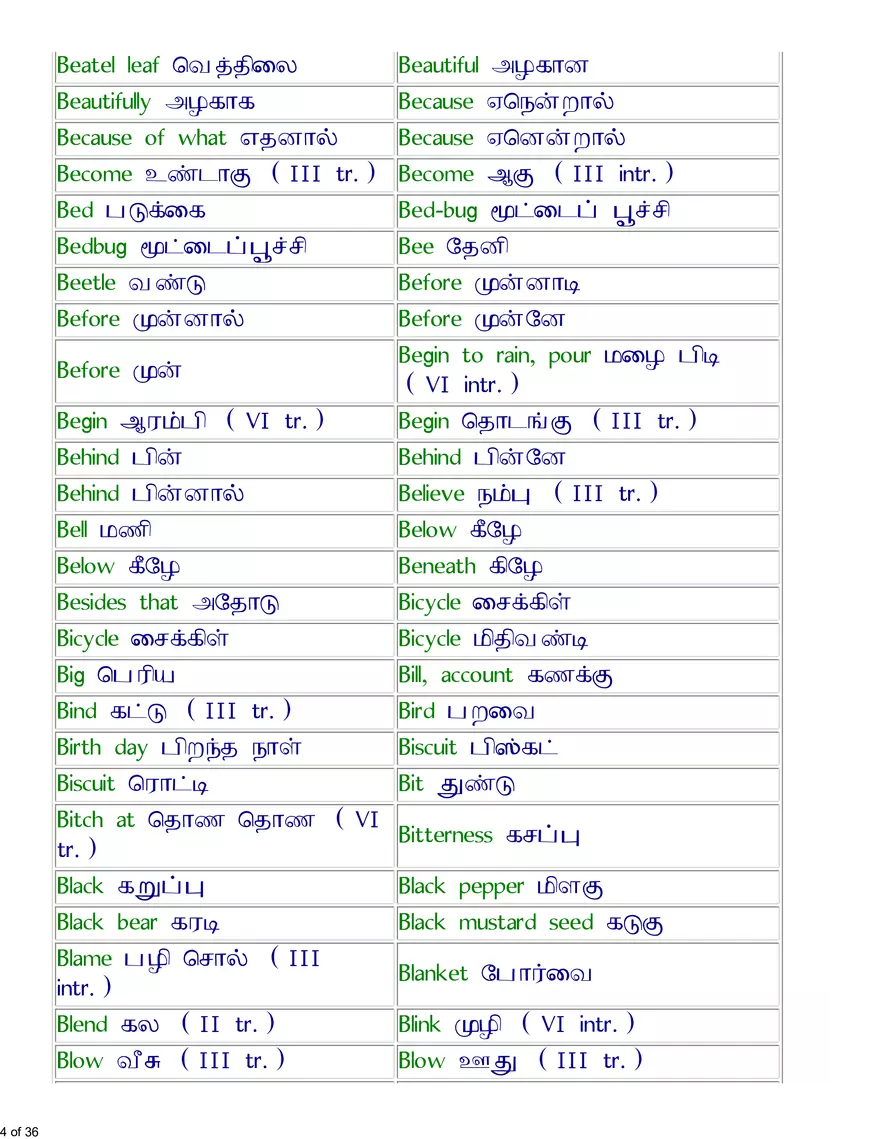 Beatel leaf வெத்திலை
Beautiful அழகான
Beautifully அழகாக
Because ஏநென்றால்
Because of what எதனால்
Because ஏனென்றால்
Become உண்டாகு ( III tr. )
Become ஆகு ( III intr. )
Bed படுக்கை
Bed-bug மூட்டைப் பூச்சி
Bedbug மூட்டைப்பூச்சி
Bee தேனி
Beetle வண்டு
Before முன்னாடி
Before முன்னால்
Before முன்னே
Before முன்
Begin to rain, pour மழை பிடி
( VI intr. )
Begin ஆரம்பி ( VI tr. )
Begin தொடங்கு ( III tr. )
Behind பின்
Behind பின்னே
Behind பின்னால்
Believe நம்பு ( III tr. )
Bell மணி
Below கீழே
Below கீழே
Beneath கிழே
Besides that அதோடு
Bicycle சைக்கிள்
Bicycle சைக்கிள்
Bicycle மிதிவண்டி
Big பெரிய
Bill, account கணக்கு
Bind கட்டு ( III tr. )
Bird பறவை
Birth day பிறந்த நாள்
Biscuit பிஸ்கட்
Biscuit ரொட்டி
Bit துண்டு
Bitch at தொண தொண ( VI
tr. )
Bitterness கசப்பு
Black கறுப்பு
Black pepper மிளகு
Black bear கரடி
Black mustard seed கடுகு
Blame பழி சொல் ( III
intr. )
Blanket போர்வை
Blend கல ( II tr. )
Blink முழி ( VI intr. )
Blow வீசு ( III tr. )
Blow ஊது ( III tr. )
4 of 36